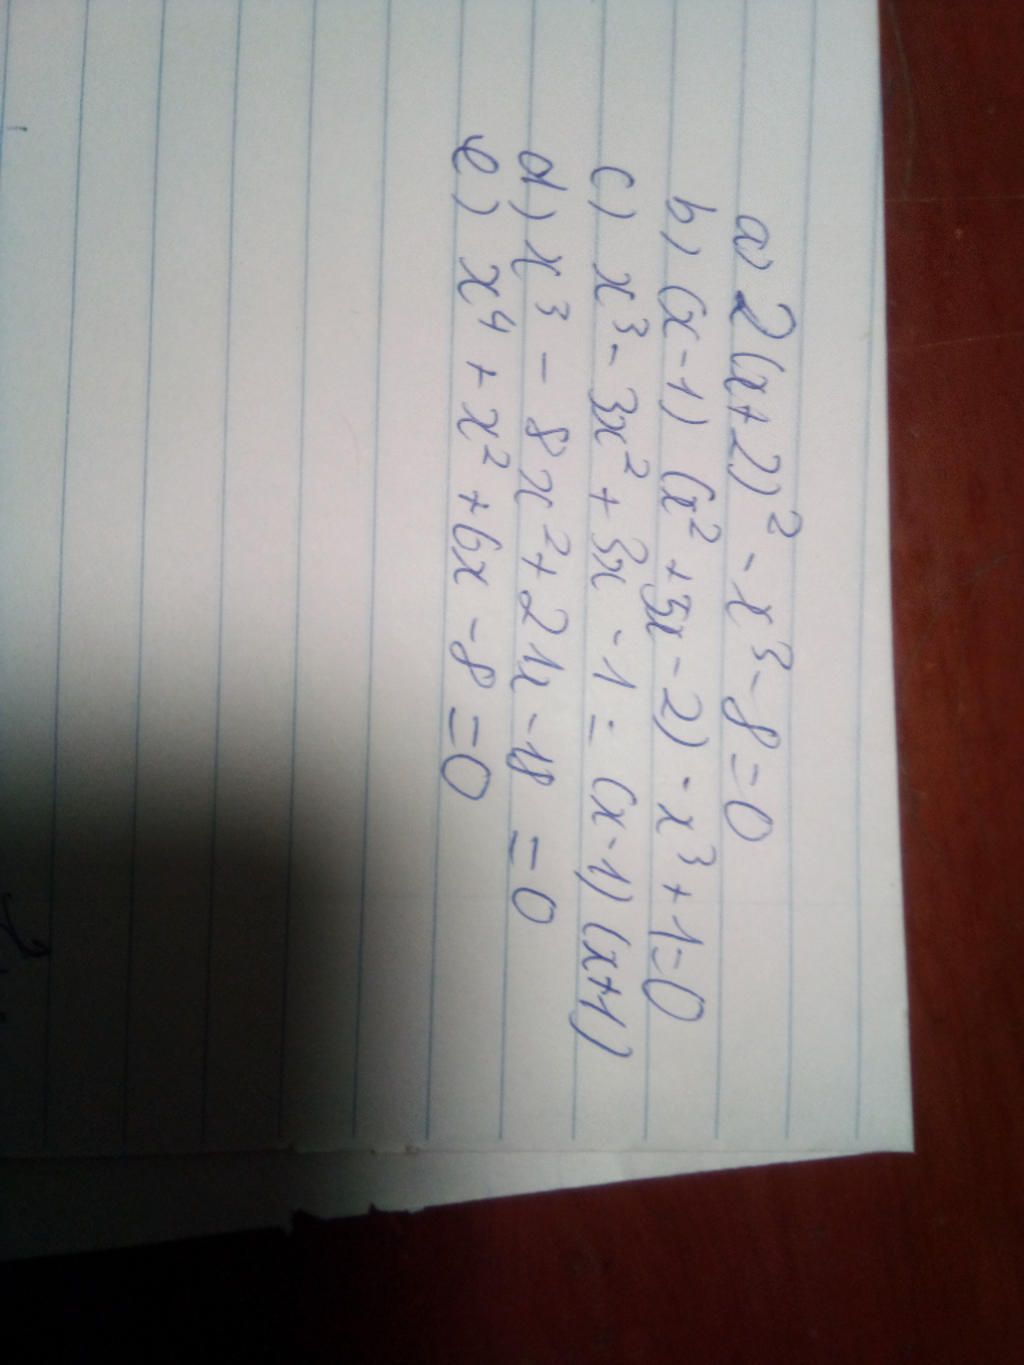 a) 2(x+2)² - x³ - 8 = 0
b) (x-1) (x² + 5x - 2) - x³ + 1 = 0
c) x³ - 3x² + 3x - 1 = (x-1) (x+1)
d) x³ - 8x² + 21x - 18 = 0
e) x⁴ + x² + 6x - 8 = 0